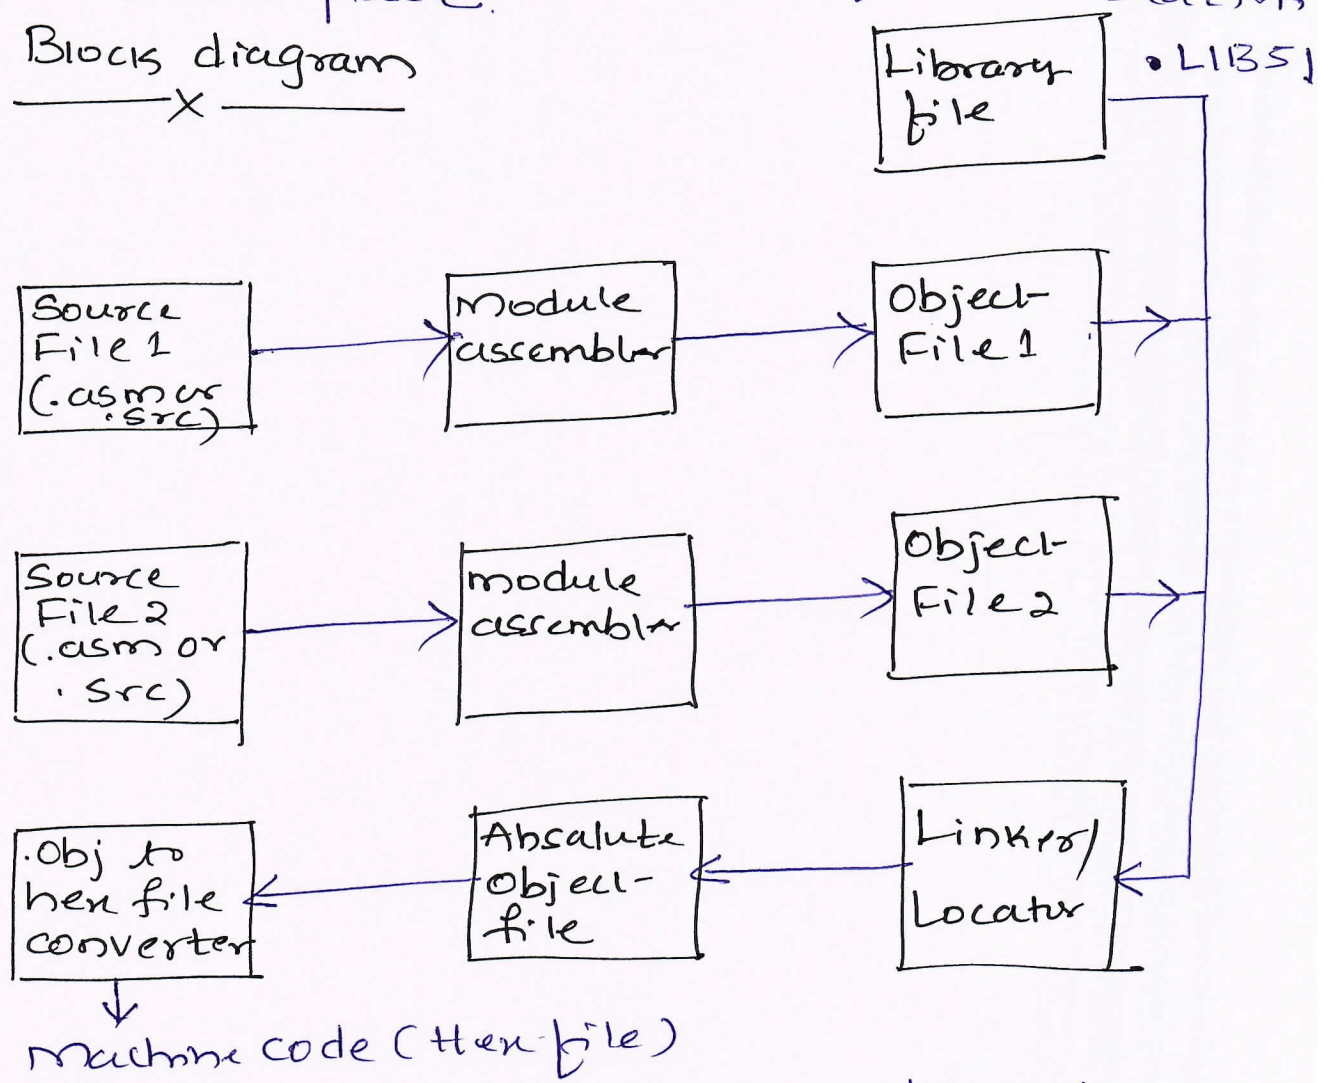 Block diagram
x
Library
file
. LIB51
Source
File 1
(.asm or
.src)
Module
assembler
Object
File 1
Source
File 2
(.asm or
.src)
module
assembler
Object
File 2
.Obj to
hex file
converter
Absalute
object
file
Linker/
Locator
Machine code (Hex file)